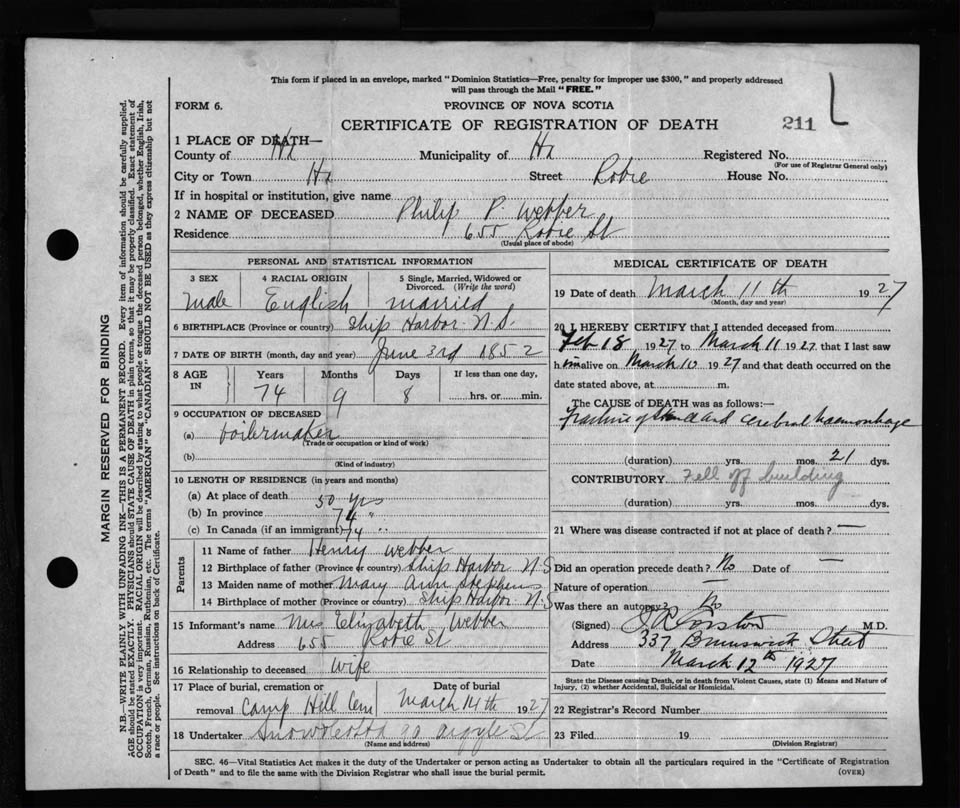 This form if placed in an envelope, marked "Dominion Statistics—Free, penalty for improper use $300," and properly addressed
will pass through the Mail "FREE."
FORM 6.
PROVINCE OF NOVA SCOTIA
CERTIFICATE OF REGISTRATION OF DEATH
211
1 PLACE OF DEATH—
County of Hx Municipality of Hx Registered No.
(For use of Registrar General only)
City or Town Hx Street Robie House No.
If in hospital or institution, give name
2 NAME OF DECEASED Philip P. Webber
Residence 655 Robie St
(Usual place of abode)
PERSONAL AND STATISTICAL INFORMATION
3 SEX 4 RACIAL ORIGIN 5 Single, Married, Widowed or
Divorced. (Write the word)
male English married
6 BIRTHPLACE (Province or country) Ship Harbor N.S.
7 DATE OF BIRTH (month, day and year) June 3rd 1852
8 AGE IN Years Months Days If less than one day,
74 9 8 hrs. or min.
9 OCCUPATION OF DECEASED
(a) boilermaker
(Trade or occupation or kind of work)
(b)
(Kind of industry)
10 LENGTH OF RESIDENCE (in years and months)
(a) At place of death 50 yrs
(b) In province 74 "
(c) In Canada (if an immigrant) 74 "
Parents
11 Name of father Henry Webber
12 Birthplace of father (Province or country) Ship Harbor N.S
13 Maiden name of mother Mary Ann Stephens
14 Birthplace of mother (Province or country) Ship Harbor N.S
15 Informant's name Mrs Elizabeth Webber
Address 655 Robie St
16 Relationship to deceased wife
17 Place of burial, cremation or Date of burial
removal Camp Hill Cem March 14th 1927
18 Undertaker 90 Argyle St
(Name and address)
MEDICAL CERTIFICATE OF DEATH
19 Date of death March 11th 1927
(Month, day and year)
20 I HEREBY CERTIFY that I attended deceased from
Feb 18 1927 to March 11 1927 that I last saw
him alive on March 10 1927 and that death occurred on the
date stated above, at m.
The CAUSE of DEATH was as follows:—
Fracture of and Cerebral haemorrhage
(duration) yrs. mos. 21 dys.
CONTRIBUTORY Fell off building
(duration) yrs. mos. dys.
21 Where was disease contracted if not at place of death? —
Did an operation precede death? No Date of —
Nature of operation —
Was there an autopsy? No
(Signed) M.D.
Address 337 Brunswick Street
Date March 12th 1927
State the Disease causing Death, or in death from Violent Causes, state (1) Means and Nature of
Injury, (2) whether Accidental, Suicidal or Homicidal.
22 Registrar's Record Number
23 Filed 19
(Division Registrar)
SEC. 46—Vital Statistics Act makes it the duty of the Undertaker or person acting as Undertaker to obtain all the particulars required in the "Certificate of Registration
of Death" and to file the same with the Division Registrar who shall issue the burial permit.
(OVER)
MARGIN RESERVED FOR BINDING
N.B.—WRITE PLAINLY WITH UNFADING INK—THIS IS A PERMANENT RECORD. Every item of information should be carefully supplied.
AGE should be stated EXACTLY. PHYSICIANS should STATE CAUSE OF DEATH in plain terms, so that it may be properly classified. Exact statement of
OCCUPATION is very important. RACIAL ORIGIN will be described by stating to what people or tongue the deceased person belonged, whether English, Irish,
Scotch, French, German, Russian, Ruthenian, etc. The terms "AMERICAN" or "CANADIAN" SHOULD NOT BE USED as they express citizenship but not
a race or people. See instructions on back of Certificate.